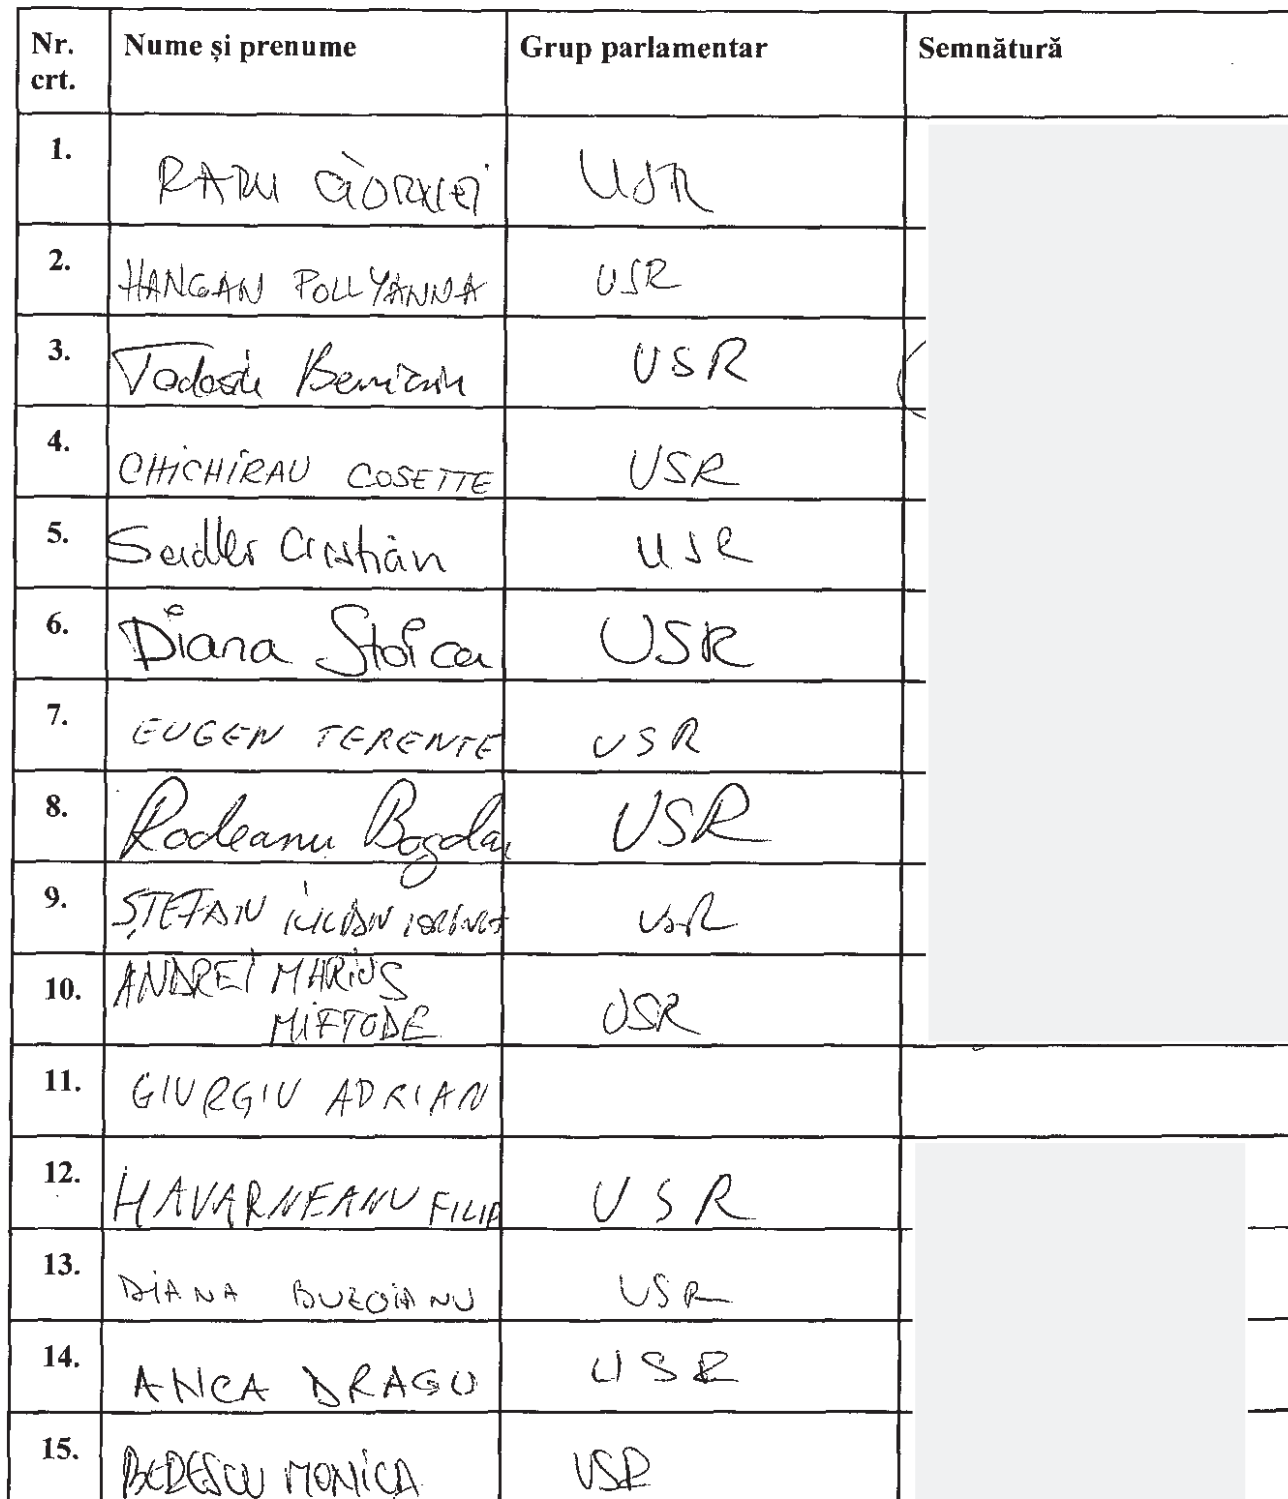 Nr. crt. Nume și prenume Grup parlamentar Semnătură
1. RADU CIORNEI USR
2. HANGAN POLLYANNA USR
3. Todosiu Beniamin USR
4. CHICHIRAU COSETTE USR
5. Seidler Cristian USR
6. Diana Stoica USR
7. EUGEN TERENTE USR
8. Rodeanu Bogdan USR
9. ȘTEFAN IULIAN USR
10. ANDREI MARIUS
MIFTODE USR
11. GIURGIU ADRIAN
12. HAVARNEANU FILIP USR
13. DIANA BUZOIANU USR
14. ANCA DRAGU USR
15. BERESCU MONICA USR